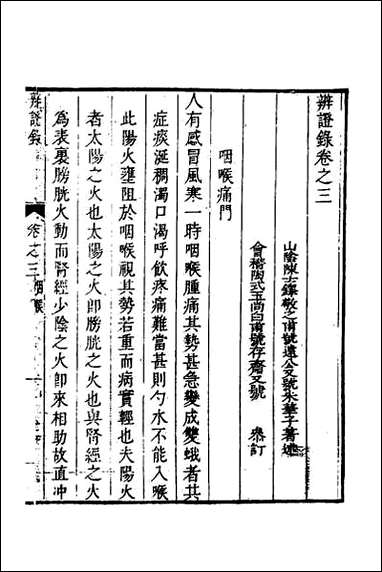 辨證錄卷之三
山陰陳士鐸敬之甫號遠公又號朱華子著述
會稽陶式玉尚白甫號存齋又號　參訂
咽喉痛門
人有感冒風寒一時咽喉腫痛其勢甚急變成雙蛾者其
症痰涎稠濁口渴呼飲疼痛難當甚則勺水不能入喉
此陽火壅阻於咽喉視其勢若重而病實輕也夫陽火
者太陽之火也太陽之火即膀胱之火也與腎經之火
為表裏膀胱火動而腎經少陰之火即來相助故直冲
辨證錄
卷之三
咽喉